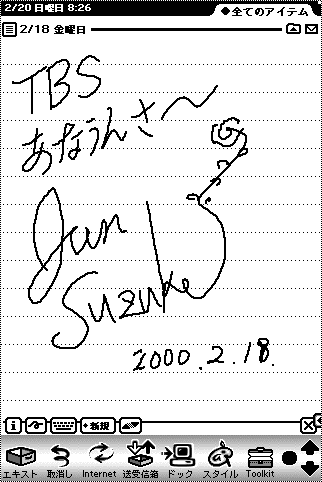 2/20 日曜日 8:26
◆全てのアイテム
2/18 金曜日
TBS
あなうんさ〜
Jun
Suzuki
2000.2.18.
◆新規
エキスト 取消し Internet 送受信箱 ドック スタイル Toolkit